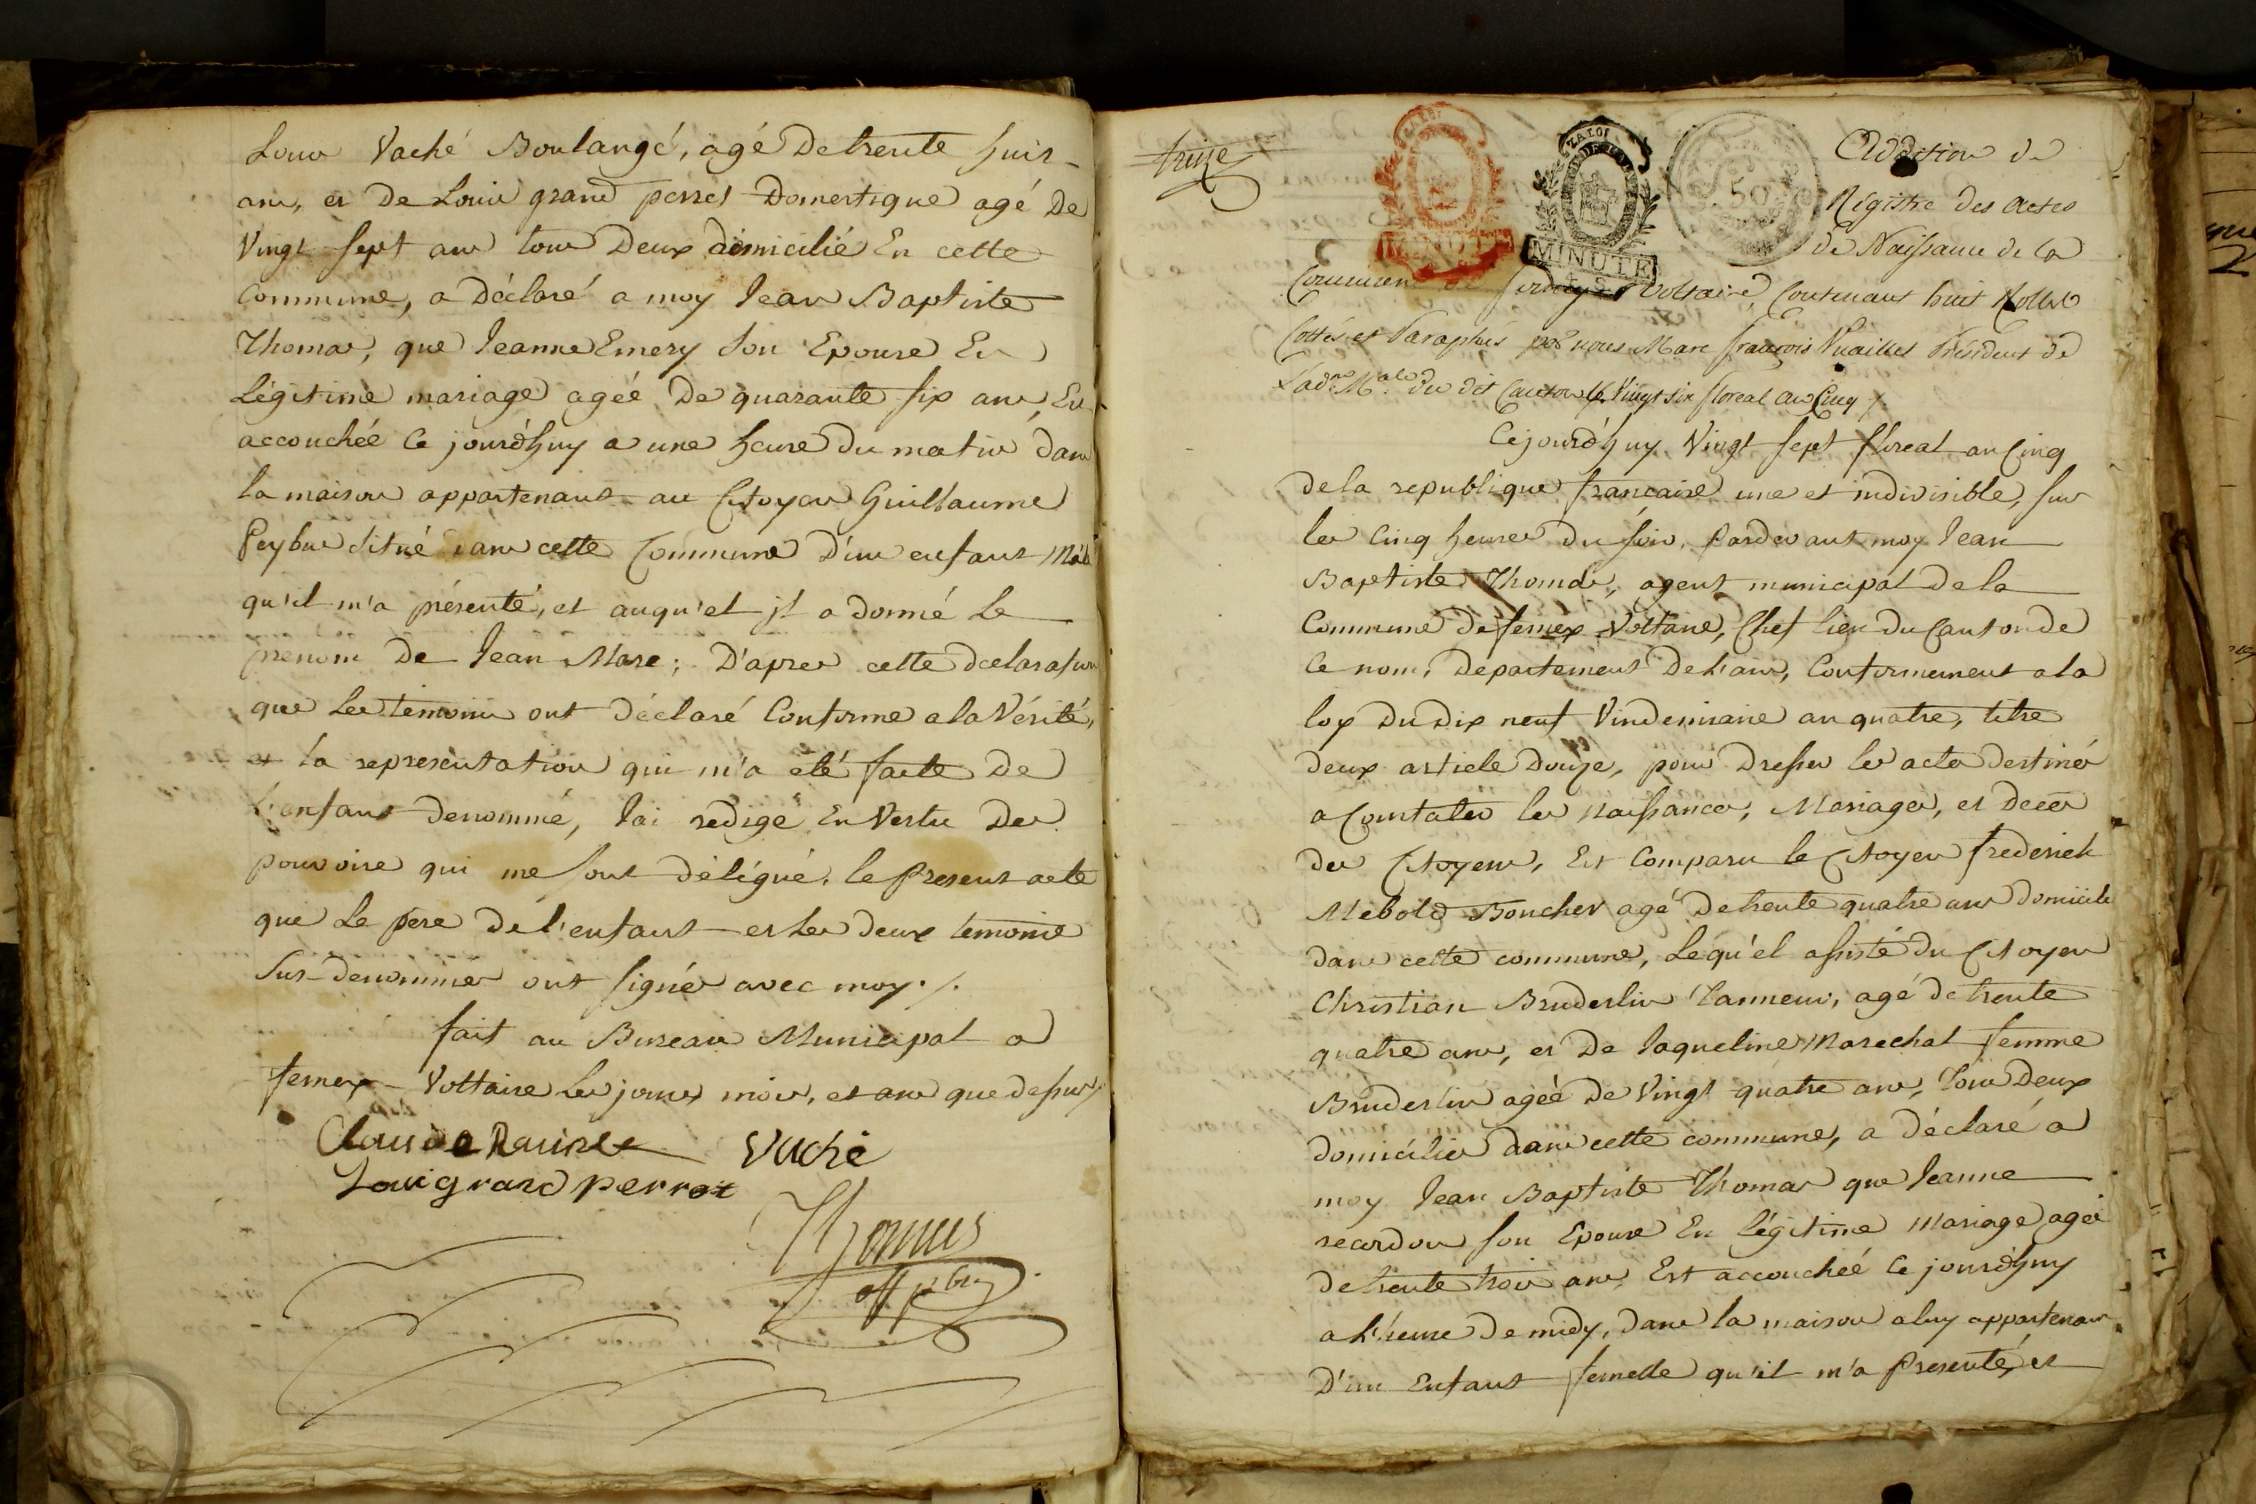 Louis Vaché Boulangé, agé de trente huit
ans, et de Louis grand perret Domestique agé de
Vingt sept ans tous Deux domicilié En cette
Commune, a Déclaré a moy Jean Baptiste
Thomas, que Jeanne Emery Son Epouse En
Légitime mariage agéé De quarante six ans, Est
accouchéé Ce jourd'huy a une heure du matin dans
la maison appartenant au Citoyen Guillaume
Situé dans cette Commune D'un enfant Mâle
qu'il m'a présenté, et auqu'el jl a donné Le
prenom De Jean Marc; D'apres cette declaration
que Les temoins ont déclaré Conforme a la Vérité,
et la representation qui m'a été faite De
L'enfant denommé, J'ai redigé En Vertu Des
pouvoirs qui me sont délégué, le Present acte
que Le père De l'enfant et Les deux temoins
Sus-denommés ont signés avec moy ./.
fait au Bureau Municipal a
fernex-Voltaire Les jour, mois, et ans que dessus ./.
Claude
Vuche
Loui grand perrot
Thomas
off pbu
treize
MINUTE
LA LOI
MINUTE
50
Addition de
Régistre des actes
de Naissance de la
Commune de ferney Voltaire, Contenant huit Rolles
Cottés et Paraphés par nous Marc françois Vuaillet Président de
L'adon Male du dit Canton le Vingt six floreal an Cinq ./.
Cejourd'huy Vingt sept floreal an Cinq
de la republique française une et indivisible, sur
les Cinq heures du soir, Pardevant moy Jean
Baptiste Thomas, agent municipal de la
Commune de fernex Voltaire, Chef lieu du Canton de
Ce nom, Departement De L'ain, Conformement a la
loy Du Dix neuf Vindemiaire an quatre, titre
deux article Douze, pour Dresser les actes destinés
a Constater les Naissances, Mariages, et deces
des Citoyens, Est Comparu le Citoyen frederich
Mebold Boucher agé De trente quatre ans Domicilié
dans cette commune, Lequ'el assisté du Citoyen
Christian Bruderlin Tanneur, agé de trente
quatre ans, et De Jaqueline Marechal femme
Bruderlin agéé De Vingt quatre ans, tous Deux
domiciliés dans cette commune, a déclaré a
moy Jean Baptiste Thomas que Jeanne
recordon son Epouse En Légitime Mariage agéé
de trente trois ans, Est accouchéé Ce jourd'huy
a L'heure De midy, dans la maison a luy appartenant
D'un Enfant femelle qu'il m'a Presenté, et